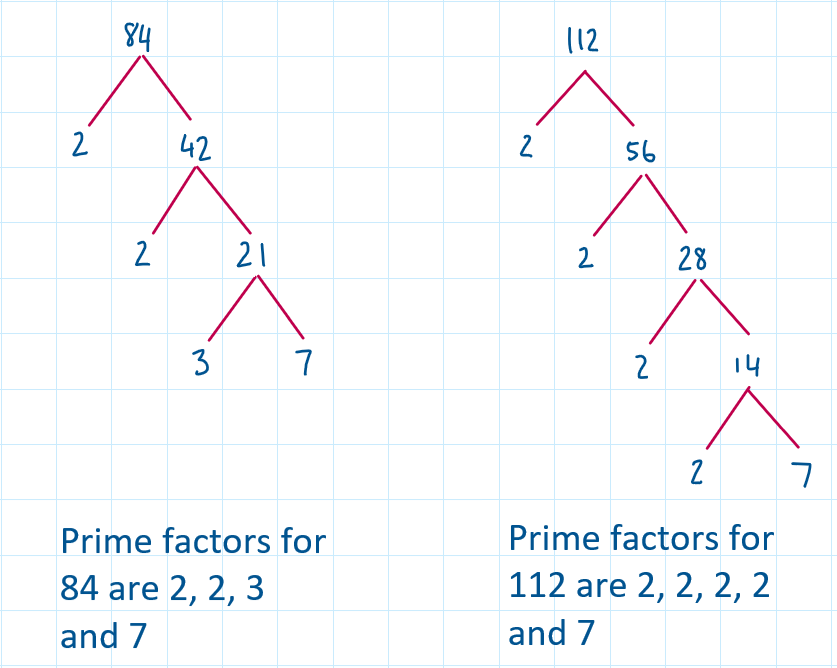 84
2 42
2 21
3 7
Prime factors for
84 are 2, 2, 3
and 7
112
2 56
2 28
2 14
2 7
Prime factors for
112 are 2, 2, 2, 2
and 7